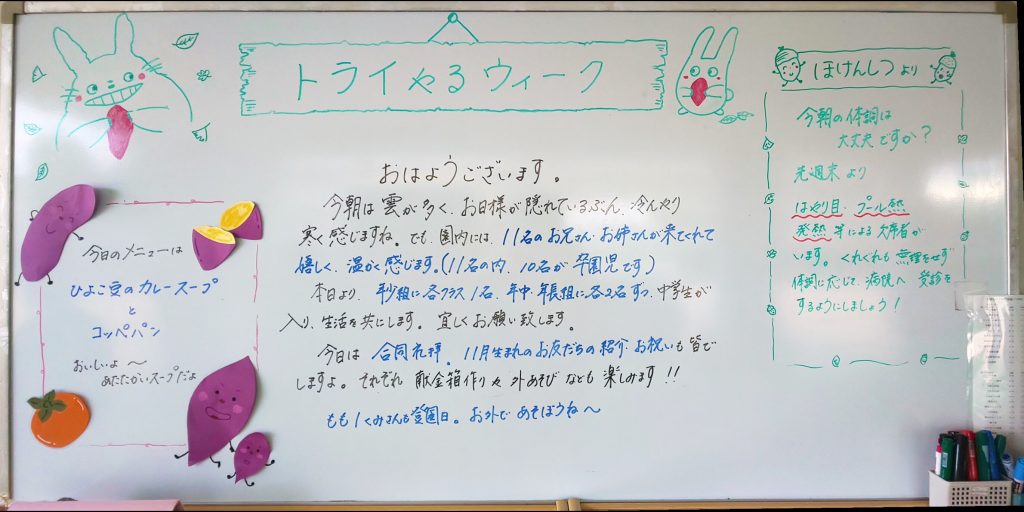 トライやるウィーク
おはようございます。
今朝は雲が多く、お日様が隠れているぶん、冷んやり
寒く感じますね。でも、園内には、11名のお兄さん・お姉さんが来てくれて
嬉しく、温かく感じます。(11名の内、10名が卒園児です)
本日より、年少組に各クラス1名、年中・年長組に各2名ずつ、中学生が
入り、生活を共にします。宜しくお願い致します。
今日は 合同礼拝。11月生まれのお友だちの紹介・お祝いも皆で
しますよ。それぞれ 献金箱作りや 外あそび なども 楽しみます!!
もも1くみさんも登園日。お外で あそぼうね〜
今日のメニューは
ひよこ豆のカレースープ
と
コッペパン
おいしいよ〜
あたたかいスープだよ
ほけんしつより
今朝の体調は
大丈夫ですか?
先週末より
はやり目・プール熱
発熱 等による欠席者が
います。くれぐれも無理をせず
体調に応じて、病院へ 受診を
するようにしましょう!